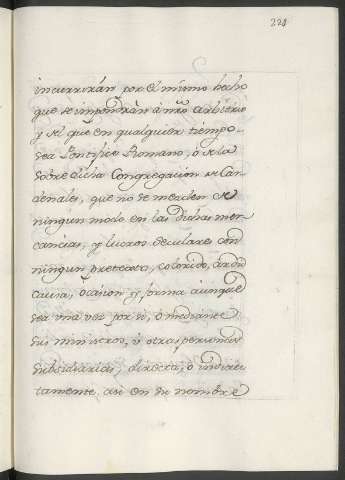 221
incurrirán por el mismo hecho
que se impondrán à nrõ arbitrio
y del que en qualquier tiempo
sea Pontifice Romano, ò de la
sobre dicha Congregacion de Car
denales, que no se mezclen de
ningun modo en las dichas mer
cancias, y lucros seculares con
ningun pretexto, colorido, ardid
causa, ocasion y forma aunque
sea una vez por si, o mediante
sus ministros, ù otras personas
subsidiarias, directa, o indirec
tamente, asi en su nombre